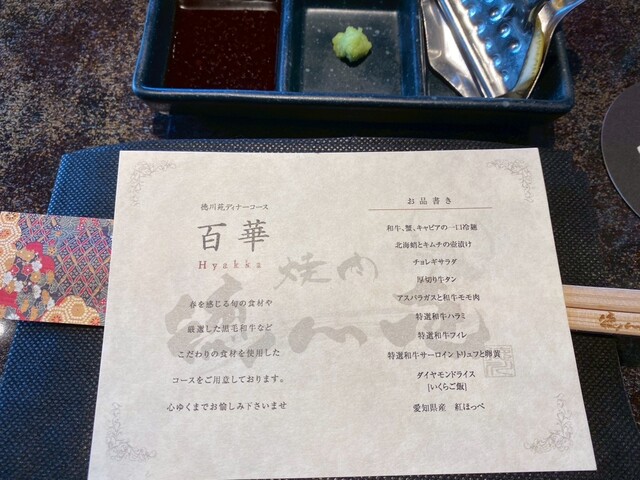 徳川苑ディナーコース
百華
Hyakka
春を感じる旬の食材や
厳選した黒毛和牛など
こだわりの食材を使用した
コースをご用意しております。
心ゆくまでお愉しみ下さいませ
お品書き
和牛、蟹、キャビアの一口冷麺
北海蛸とキムチの壺漬け
チョレギサラダ
厚切り牛タン
アスパラガスと和牛モモ肉
特選和牛ハラミ
特選和牛フィレ
特選和牛サーロイン トリュフと卵黄
ダイヤモンドライス
[いくらご飯]
愛知県産 紅ほっぺ
焼肉
徳川苑